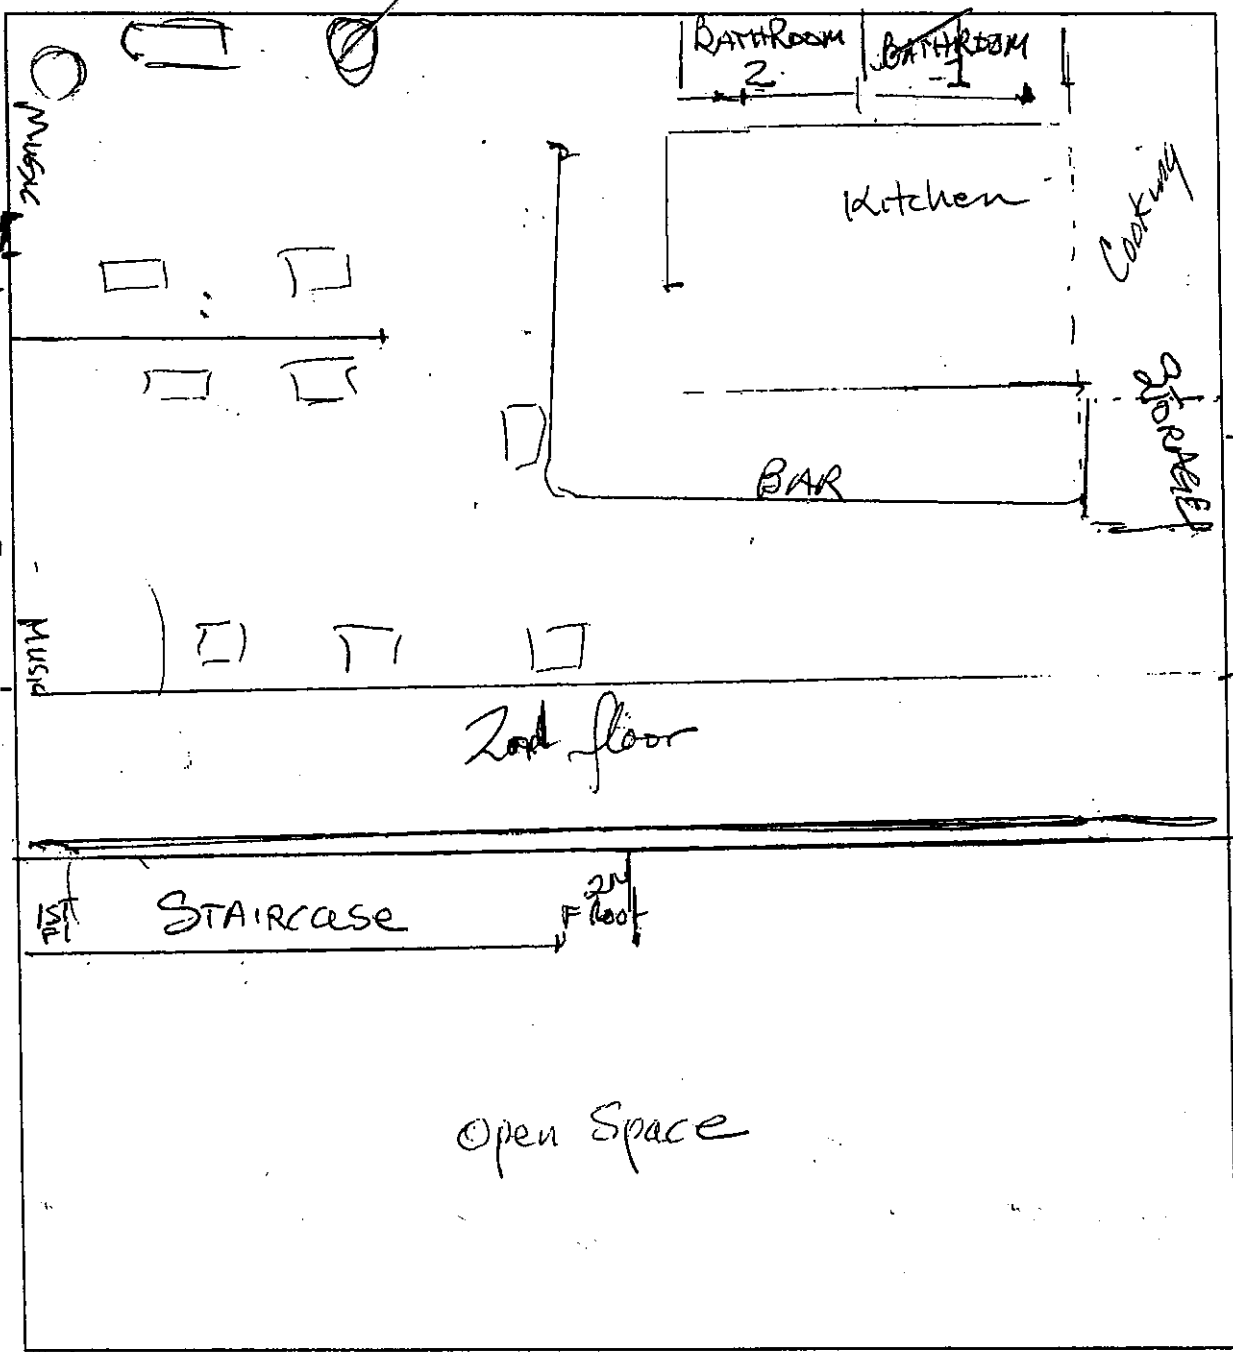 BATHROOM
2
BATHROOM
1
Music
Kitchen
Cooking
STORAGE
BAR
Music
2nd floor
1st
Fl
STAIRCASE
2N
Floor
Open Space